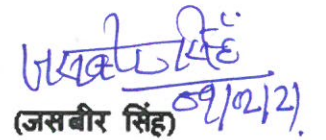 जसबीर सिंह
09/02/21
(जसबीर सिंह)